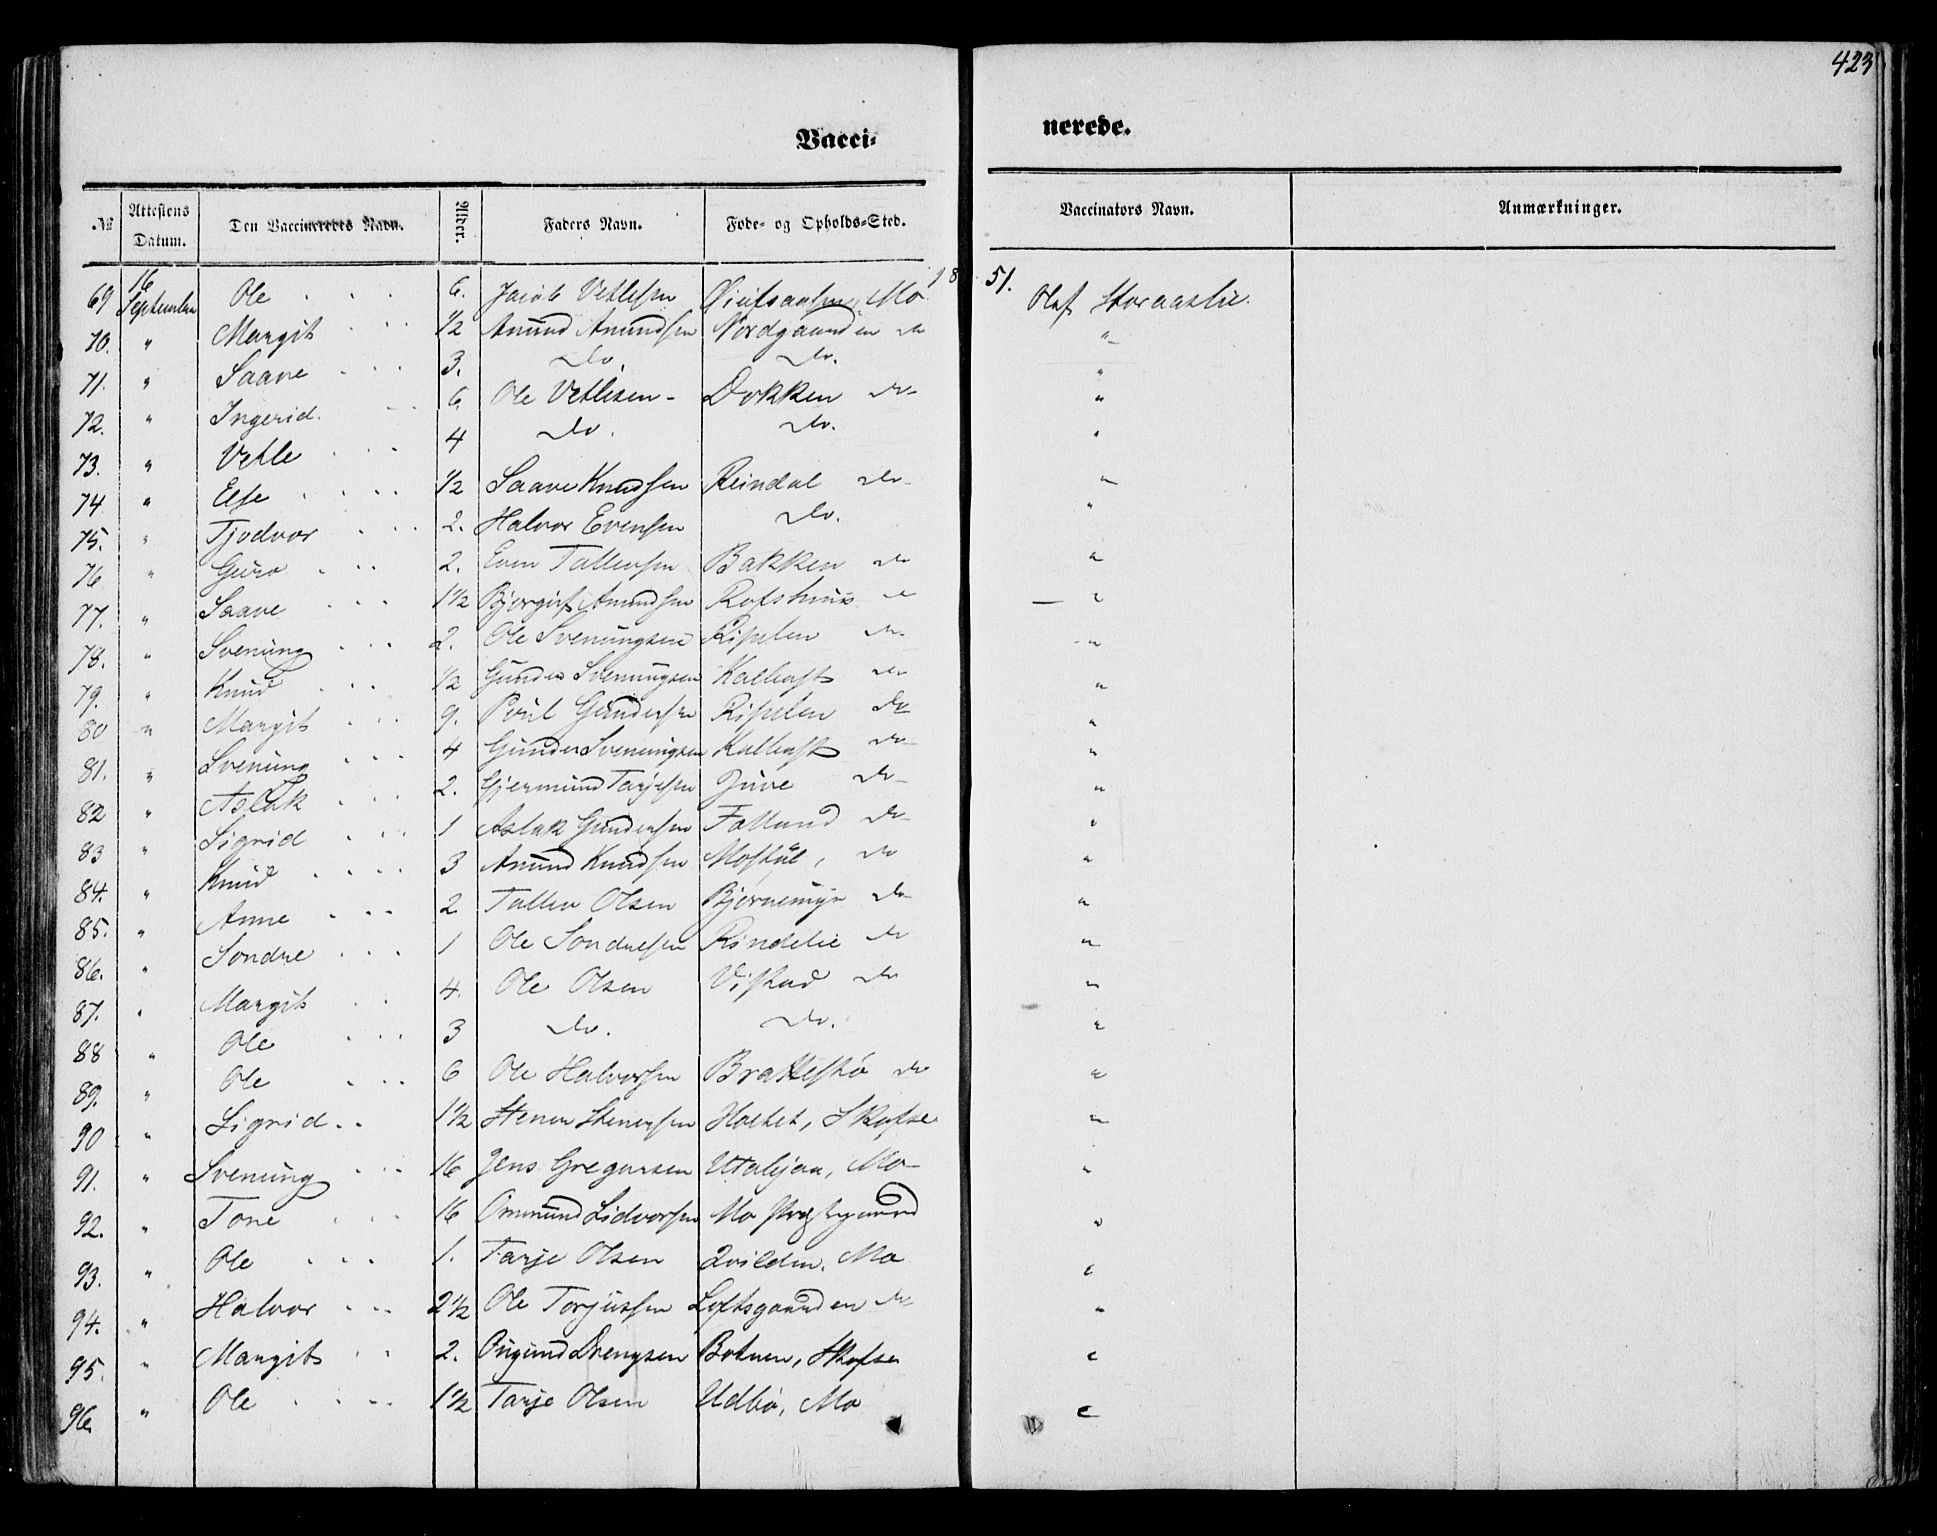 423
Vacci- nerede.
No Attestens Datum. Den Vaccineredes Navn. Alder. Faders Navn. Føde- og Opholds-Sted. Vaccinators Navn. Anmærkninger.
18 51.
69 16 September Ole 6. Jacob Vetlesen Mo Olaf Storaaslie.
70. " Margit 1/2 Anund Anundsen Nordgaarden do "
71. " Saave 3. do. do. "
72. " Ingerid. 6. Ole Vetlesen - Dokken do "
73. " Vetle 4 do. do. "
74 " Else 1/2 Saave Knudsen Reindal do "
75. " Tjodvor 2. Halvor Evensen do. "
76 " Guro 2. Even Tallevsen Bakken do "
77. " Saave 1 1/2 Bjørguf Anundsen Rofshuus do "
78. " Svenung 2. Ole Svenungsen Ripelen do "
79. " Knud 1/2 Gunder Svenungsen Kalhaft do "
80 " Margit 9. Poul Gundersen Ripelen do "
81. " Svenung 4 Gunder Svenungsen Kalhaft do "
82 " Aslak 2. Gjermund Tarjesen Juve do "
83 " Sigrid 1 Aslak Gundersen Folland do "
84. " Knud 3 Anund Knudsen Moskul, do "
85. " Anne 2 Tallev Olsen Bjørnemyr do "
86. " Sondre 1 Ole Sondresen Rindelie do "
87. " Margit 4. Ole Olsen Viskad do "
88 " Ole 3 do. do. "
89. " Ole 6 Ole Halvorsen Bratteskø do "
90 " Sigrid 1 1/2 Stener Stenersen Haetet, Skafse "
91. " Svenung 16 Jens Gregarsen Utalijaa, Mo "
92. " Tone 16 Ommund Lidvorsen Mo Præstegaard "
93. " Ole 1. Tarje Olsen Qvilden, Mo "
94. " Halvor 2 1/2 Ole Torjussen Loftsgaarden do "
95. " Margit 2. Augund Drengsen Botnen, Skafse "
96. " Ole 1 1/2 Tarje Olsen Udbø, Mo "